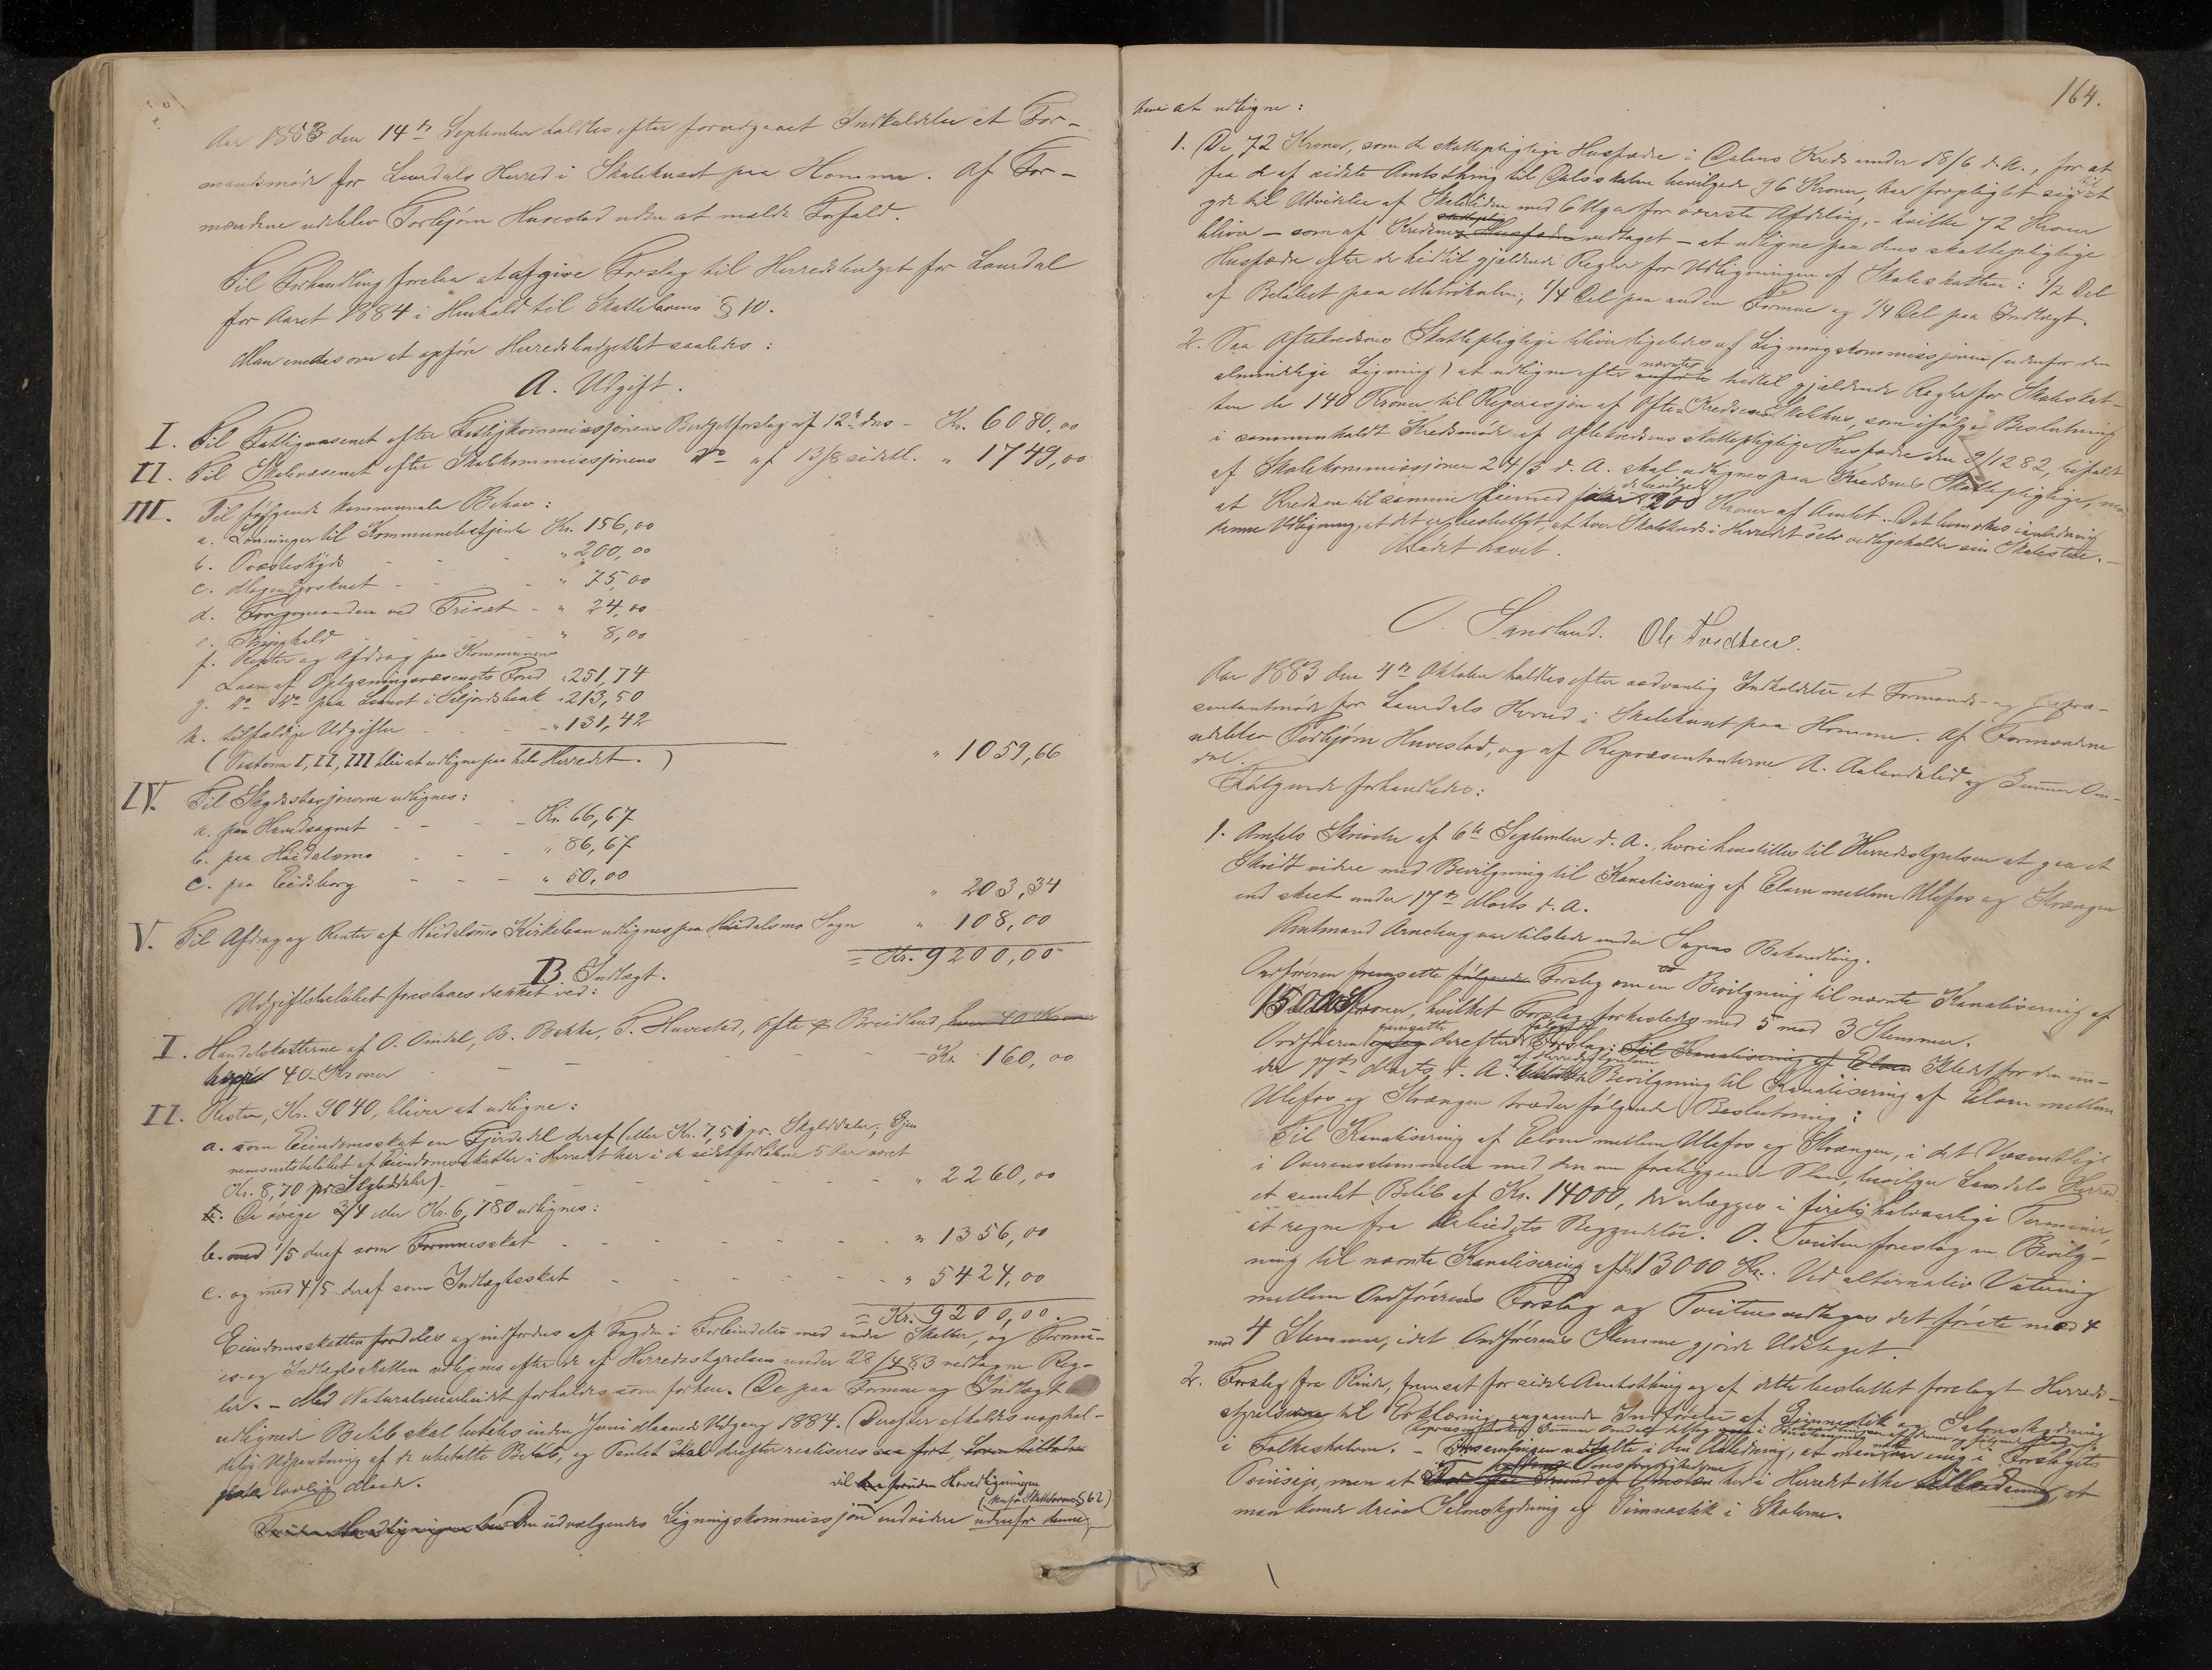 Aar 1883 den 14de September holdtes efter forudgaaet Indkaldelse et For-
mandsmøde for Laurdals Herred i Skolehuset paa Homme. Af For-
mændene udeblev Torbjørn Huvestad uden at melde Forfald.
Til Forhandling forelaa at afgive Forslag til Herredsbudget for Laurdal
for Aaret 1884 i Henhold til Skattelovens § 10.
Man enedes om at opføre Herredsbudgettet saaledes:
A. Udgift.
I. Til Fattigvæsenet efter Fattigkommissjonens Budgetforslag af 12te ds - Kr. 6080,00
II. Til Skolevæsenet efter Skolekommissjonens Do af 13/8 sidstl. " 1749,00
III. Til følgende kommunale Behov:
a. Lønninger til Kommunebetjente Kr. 156,00
b. Præsteskyds - - " 200,00
c. Mægendorskuet - - " 75,00
d. Forgjomanden ved Triset - " 24,00
e. Thinghold " 8,00
f. Renter og Afdrag paa Kommunens
Laan af Oplysningsvæsenets Fond " 251,74
g. Do Do paa Laanet i Siljords bank " 213,50
h. tilfældige Udgifter - - " 131,42
(Posterne I, II, III bliver at udligne paa hele Herredet.) " 1059,66
IV. Til Skydsstasjonerne udlignes:
a. paa Hovedsognet - - - Kr. 66,67
b. paa Høidalsmo - - - " 86,67
c. paa Eidsborg - - - " 50,00
" 203,34
V. Til Afdrag og Renter af Høidalsmo Kirkelaan udlignes paa Høidalsmo Sogn " 108,00
= Kr. 9200,00
B. Indtægt.
Udgiftsbeløbet foreslaaes dækket ved:
I. Handelsskatterne af O. Omdal, B. Bekka, T. Huvestad, Ofte & Breidland, hver 40 Kroner
40 Kroner - - - Kr. 160,00
II. Resten, Kr. 9040, bliver at udligne:
a. som Eiendomsskat en Fjerdedel deraf (eller Kr. 7,51 pr. Skylddaler; Gjen
nemsnitsbeløbet af Eiendomsskatten i Herredet har i de sidst forløbne 5 Aar været
Kr. 8,70 pr Skylddaler) - - - " 2260,00
De øvrige 3/4 eller Kr. 6,780 udlignes:
b. med 1/5 deraf som Formuesskat - - - " 1356,00
c. og med 4/5 deraf som Indtægtsskat - - - " 5424,00
= Kr. 9200,00
Eiendomsskatten fordeles og indfordres af Fogden i Forbindelse med andre Skatter, og Formu-
es- og Indtægtsskatten udlignes efter de af Herredsstyrelsen under 28/4 83 vedtagne Reg-
ler. - Med Naturalarbeidet forholdes som forhen. De paa Formue og Indtægt
udlignede Beløb skal betales inden Juni Maaned Udgang 1884. Derefter afholdes uophol-
delig Udpantning af de ubetalte Beløb, og Pantet skal derefter realiseres saa fort, Loven tillader
paa lovlig Maade.
vil foruden Hovedligningen
(sml. Skattelovens § 62)
Den udvælgendes Ligningskommissjon endvidere udenfor denne
164.
have at udligne:
1. De 72 Kroner, som de skattepligtige Husfædre i Dalens Kreds under 18/6 d. A., for at
faa de af sidste Amtsthing til Dalsskolen bevilgede 96 Kroner, har forpligtet sig til at
yde til Udvidelse af Skoletiden med 6 Uger for øverste Afdeling, - hvilke 72 Kroner
bliver - som af Kredsens Husfædre vedtaget - at udligne paa dens skattepligtige
Husfædre efter de hidtil gjældende Regler for Udligningen af Skoleskatten: 1/2 Del
af Beløbet paa Matrikulen, 1/4 Del paa anden Formue og 1/4 Del paa Indtægt.
2. Paa Oftekredsens Skattepligtige bliver ligeledes af Ligningskommissjonen (udenfor den
almindelige Ligning) at udligne efter nævnte hidtil gjældende Regler for Skoleskat-
ten de 140 Kroner til Reparasjon af Ofte-Kredsens Skolehus, som ifølge Beslutning
i sammenkaldt Kredsmøde af Oftekredsens skattepligtige Husfædre den 9/12 82, bifaldt
af Skolekommissjonen 24/3 d. A. skal udlignes paa Kredsens Skattepligtige, men
at Kredsen til samme Øiemed faar de bevilgede 200 Kroner af Amtet. Det bemærkes i anledning
denne Udligning, at det er besluttet, at hver Skolekreds i Herredet selv vedligeholder sin Skolestue. -
Mødet hævet.
O. Sandland. Ole Tveiten.
Aar 1883 den 4de Oktober holdtes efter sædvanlig Indkaldelse et Formands- og Repræ-
sentantmøde for Laurdals Herred i Skolehuset paa Homme. Af Formændene
udeblev Torbjørn Huvestad, og af Repræsentanterne A. Aalandslid og Gunnar Om-
dal.
Følgende forhandledes:
1. Amtets Skrivelse af 6te September d. A., hvori henstilles til Herredsstyrelsen at gaa et
Skridt videre med Bevilgning til Kanalisering af Elven mellem Ulefos og Strængen
end skeet under 17de Marts d. A.
Amtmand Arneberg var tilstede under Sagens Behandling.
Ordføreren fremsatte følgende Forslag om en Bevilgning til nævnte Kanalisering af
15000 Kroner, hvilket Forslag forkastedes med 5 mod 3 Stemmer.
Ordføreren fremsatte derefter følgende Forslag: Til Kanalisering af Elven Istedet for den un-
der 17de Marts d. A. af Herredsstyrelsen Bevilgning til Kanalisering af Elven mellem
Ulefos og Strængen træder følgende Beslutning:
Til Kanalisering af Elven mellem Ulefos og Strængen, i det Væsentlige
i Overensstemmelse med den nu foreliggende Plan, bevilger Laurdals Herred
et samlet Beløb af Kr. 14000, der erlægges i firti halvaarlige Terminer,
at regne fra Arbeidets Begyndelse. O. Tveiten foreslog en Bevilg-
ning til nævnte Kanalisering af Kr. 13000 Kr. Ved alternativ Votering
mellem Ordførerens Forslag og Tveitens vedtoges det første med 4
mod 4 Stemmer, idet Ordførerens Stemme gjorde Udslaget.
2. Forslag fra Rinde, fremsat for sidste Amtsthing og af dette besluttet forelagt Herreds-
styrelserne til Erklæring angaaende Indførelse af Gimnastik og Salonskydning
i Folkeskolerne. - Forsamlingen udtalte i den Anledning, at man var enig i Forslagets
Princip, men at Omstændighederne her i Herredet ikke tillader, at
man kunde drive Salonskydning og Gimnastik i Skolerne.